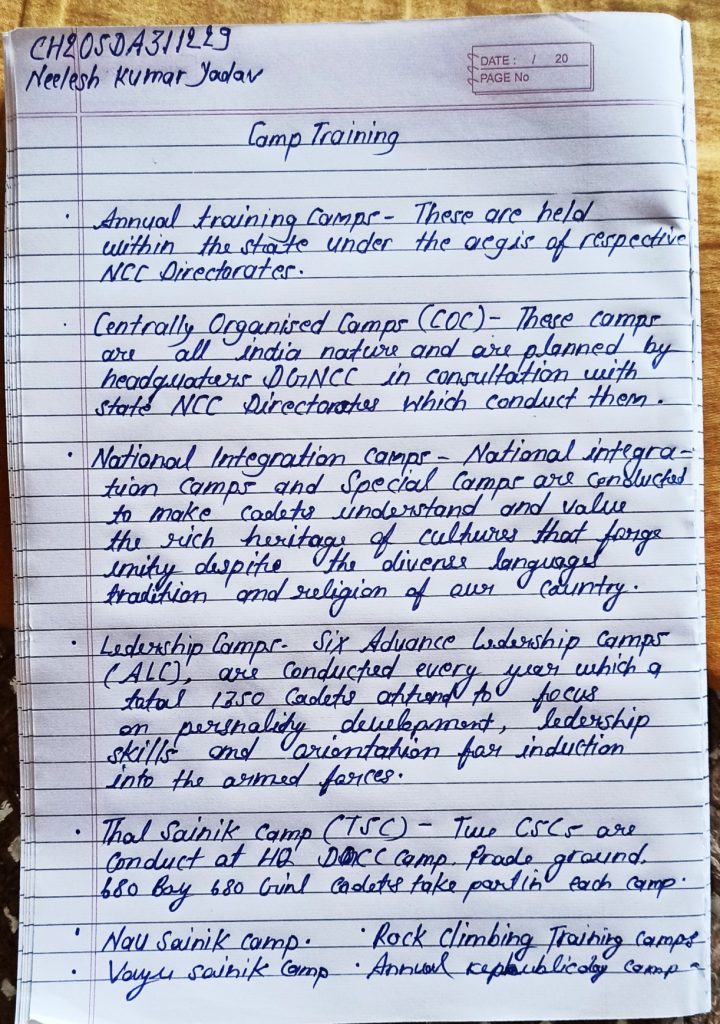 CH20SDA311229
Neelesh Kumar Yadav
DATE : / 20
PAGE No
Camp Training
• Annual training Camps - These are held
within the state under the aegis of respective
NCC Directorates.
• Centrally Organised Camps (COC) - These camps
are all india nature and are planned by
headquaters DGNCC in consultation with
state NCC Directorates which conduct them.
• National Integration camps - National integra-
tion camps and Special Camps are conducted
to make cadets understand and value
the rich heritage of cultures that forge
unity despite the diverse languages
tradition and religion of our country.
• Ledership Camps - Six Advance Ledership Camps
(ALC), are conducted every year which a
total 1350 Cadets attend to focus
on persnality development, ledership
skills and orientation for induction
into the armed forces.
• Thal Sainik Camp (TSC) - Two CSCs are
conduct at HQ camp. Prade ground.
680 Boy 680 Girl cadets take part in each camp.
• Nau Sainik camp. • Rock Climbing Training camps
• Vayu sainik Camp • Annual day camp -